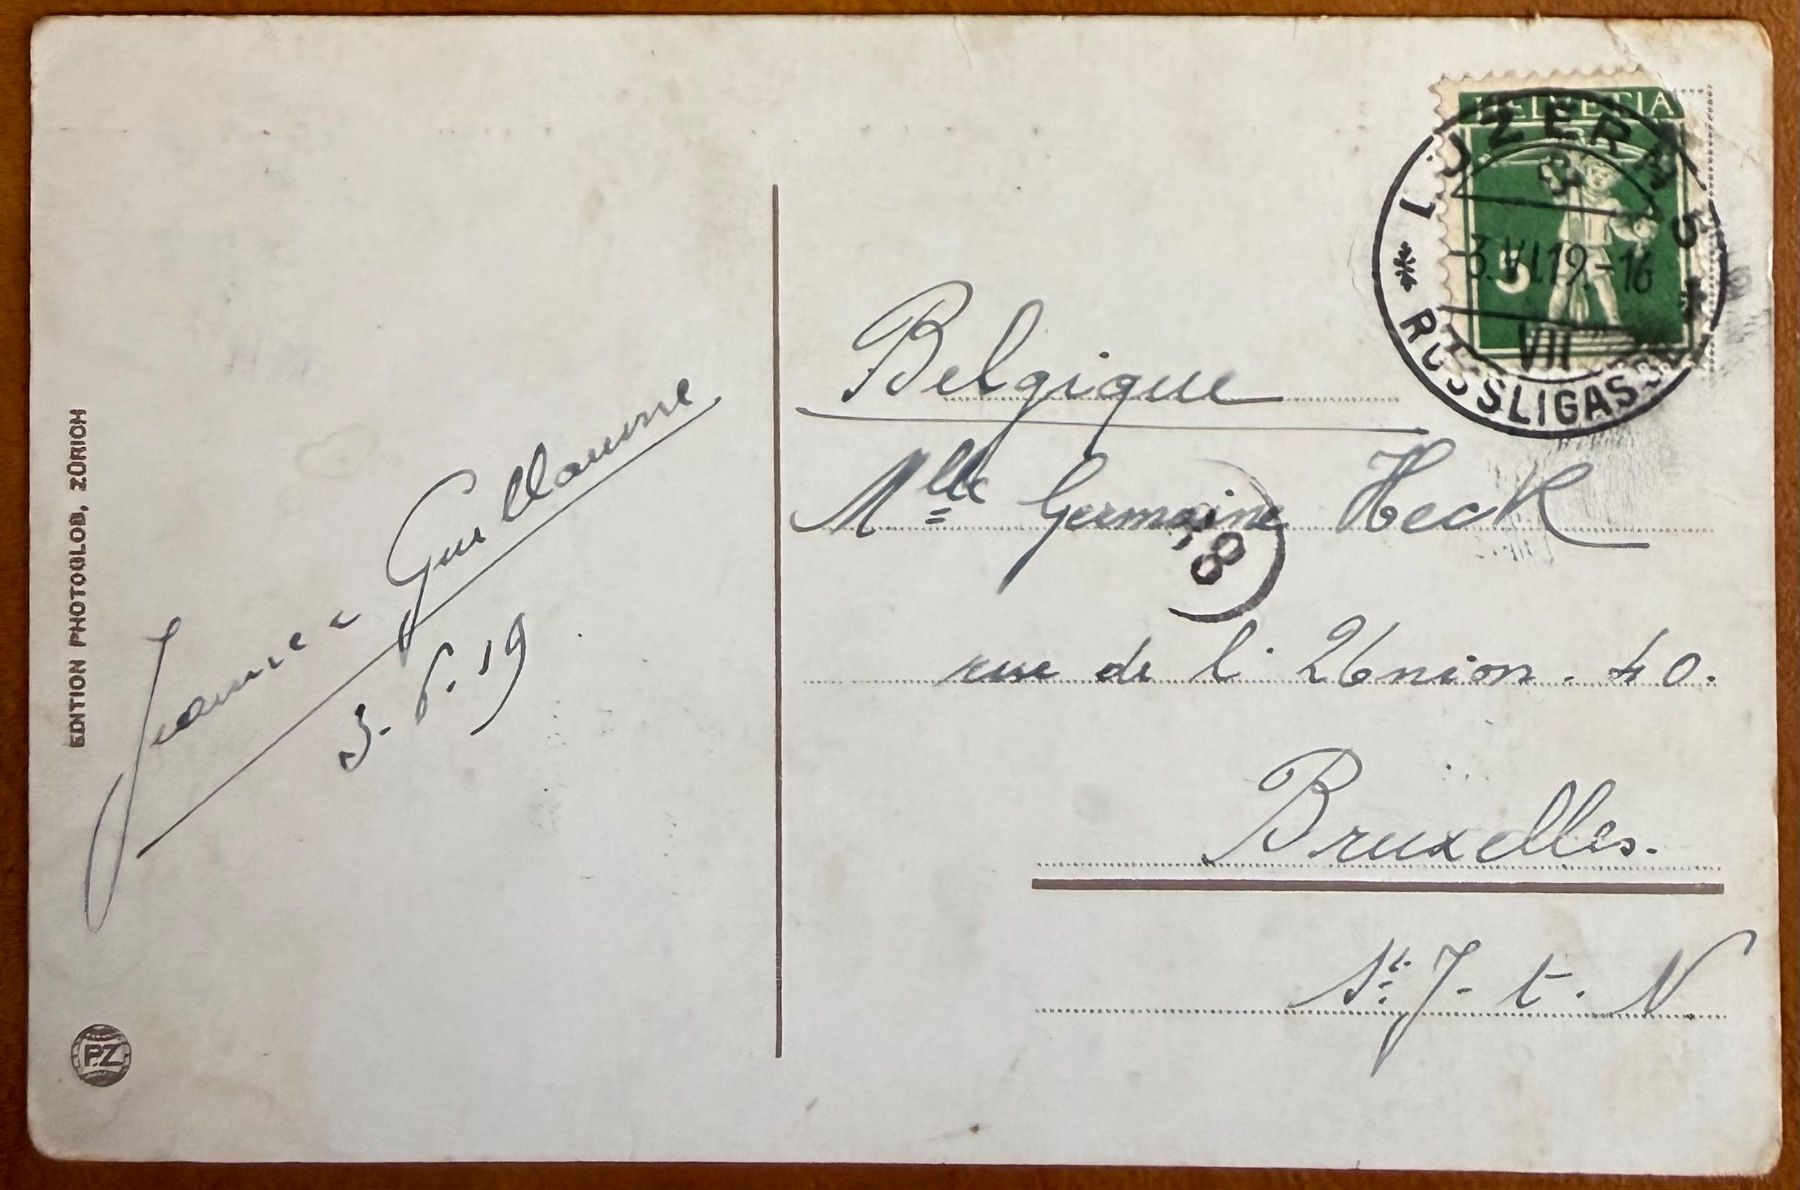 EDITION PHOTOGLOB, ZÜRICH
Jeanne Guillaume
3.6.19
PZ
HELVETIA
5
LUZERN 5
3.VI.19.-16
VII
* RÖSSLIGASSE *
Belgique
Mlle Germaine Heck
38
rue de l'Union. 40.
Bruxelles.
St. J. t. N